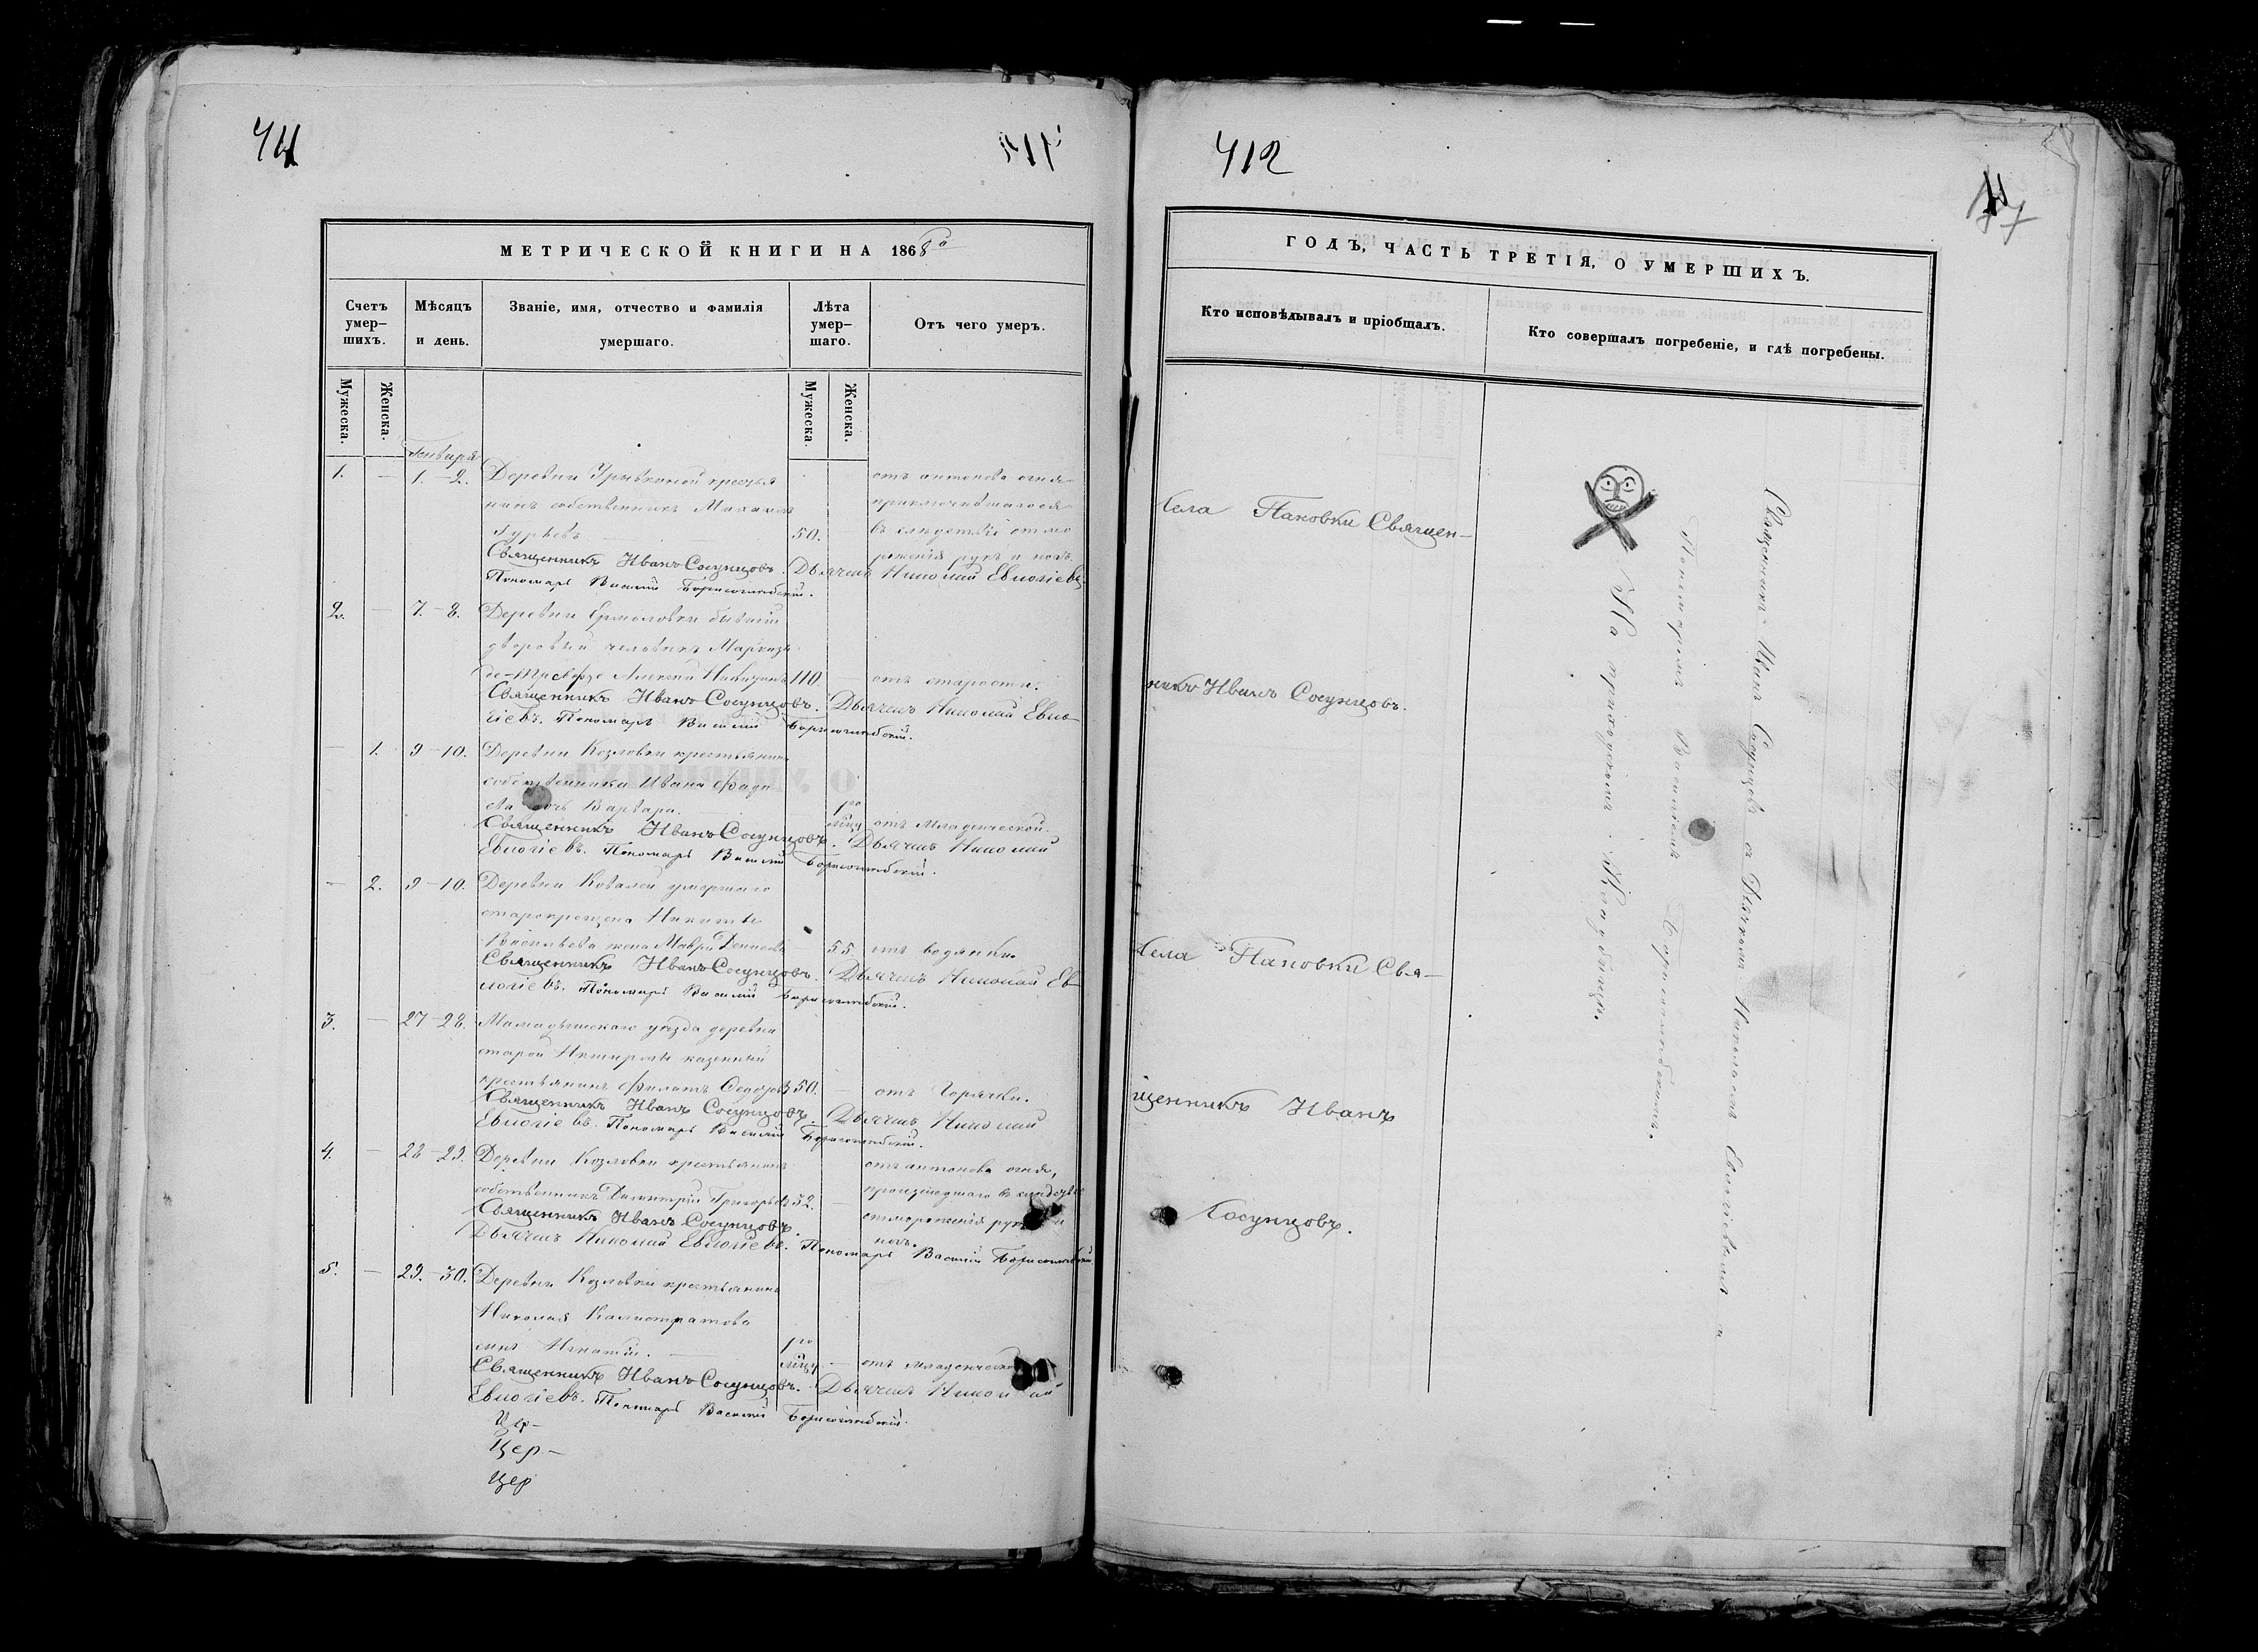 411
412
МЕТРИЧЕСКОЙ КНИГИ НА 1868го
Счетъ умер–шихъ.
Мѣсяцъ и день.
Званіе, имя, отчество и фамилія умершаго.
Лѣта умер–шаго.
Отъ чего умеръ.
Мужеска.
Женска.
Мужеска.
Женска.
Января
1. — 1.–2. Деревни крестья
нинъ собственникъ Михаилъ
Гурьевъ 50.
отъ антонова огня
приключившагося
въ слѣдствіе отмо
роженія рукъ и ногъ.
Священникъ Иванъ Сосунцовъ. Дьячекъ Николай Евлогіевъ.
Пономарь Василій Борисоглѣбскій.
2. — 7.–8. Деревни Ермоловки бывшій
дворовый человѣкъ Маркизъ
де-Траверзе Алексѣй Никитинъ 110. — отъ старости.
Священникъ Иванъ Сосунцовъ. Дьячекъ Николай Евло–
гіевъ. Пономарь Василій Борисоглѣбскій.
— 1. 9–10. Деревни Козловки крестьянина
собственника Ивана
дочь Варвара. 1го
мѣцу отъ младенческой.
Священникъ Иванъ Сосунцовъ. Дьячекъ Николай
Евлогіевъ. Пономарь Василій Борисоглѣбскій.
— 2. 9–10. Деревни Ковалей умершаго
старокрещена Никиты
Васильева жена Мавра Денисова 55 отъ водянки.
Священникъ Иванъ Сосунцовъ. Дьячекъ Николай Ев–
логіевъ. Пономарь Василій Борисоглѣбскій.
3. — 27–28. Мамадышскаго уѣзда деревни
старой казенный
крестьянинъ Филатъ Ѳедоровъ 50. — отъ Горячки.
Священникъ Иванъ Сосунцовъ. Дьячекъ Николай
Евлогіевъ. Пономарь Василій Борисоглѣбскій.
4. — 28–29. Деревни Козловки крестьянинъ
собственникъ Димитрій Григорьевъ 52. —
отъ антонова огня,
происшедшаго въ слѣдствіе
отмороженія рукъ и
ногъ.
Священникъ Иванъ Сосунцовъ.
Дьячекъ Николай Евлогіевъ. Пономарь Василій Борисоглѣбскій.
5. — 29.–30. Деревни Козловки крестьянина
Николая Калистратова
сынъ Игнатій. 1го
мѣцу — отъ младенческой
Священникъ Иванъ Сосунцовъ. Дьячекъ Николай
Евлогіевъ. Пономарь Василій Борисоглѣбскій.
Цер–
Цер–
Цер
ГОДЪ, ЧАСТЬ ТРЕТІЯ, О УМЕРШИХЪ.
Кто исповѣдывалъ и пріобщалъ.
Кто совершалъ погребеніе, и гдѣ погребены.
Села Пановки Священ–
никъ Иванъ Сосунцовъ.
Села Пановки Свя–
щенникъ Иванъ
Сосунцовъ.
Священникъ Иванъ Сосунцовъ съ Дьячкомъ Николаемъ Евлогіевымъ и
Пономаремъ Василіемъ Борисоглѣбскимъ,
На приходскомъ кладбищѣ.